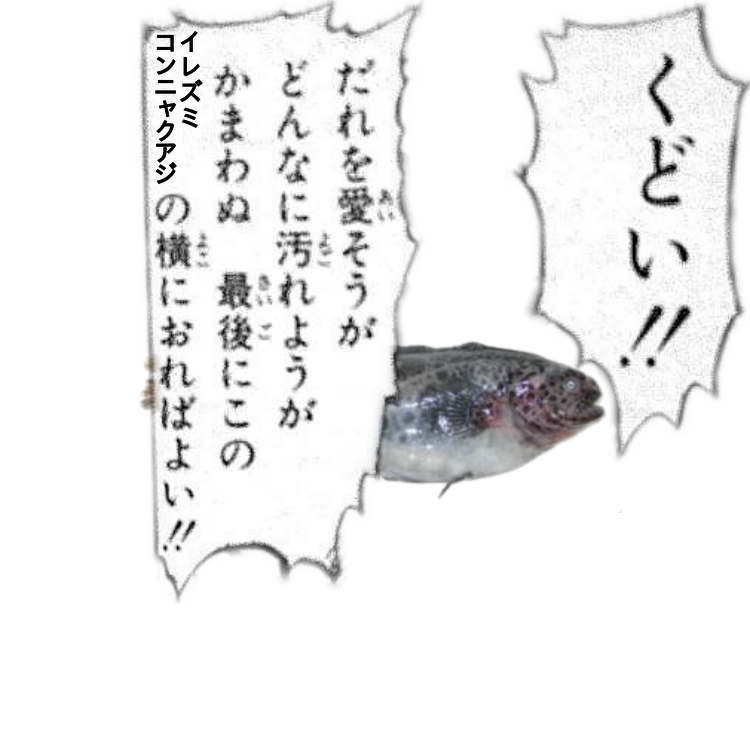 くどい!!
だれを愛そうが
どんなに汚れようが
かまわぬ 最後にこの
イレズミコンニャクアジの横におればよい!!